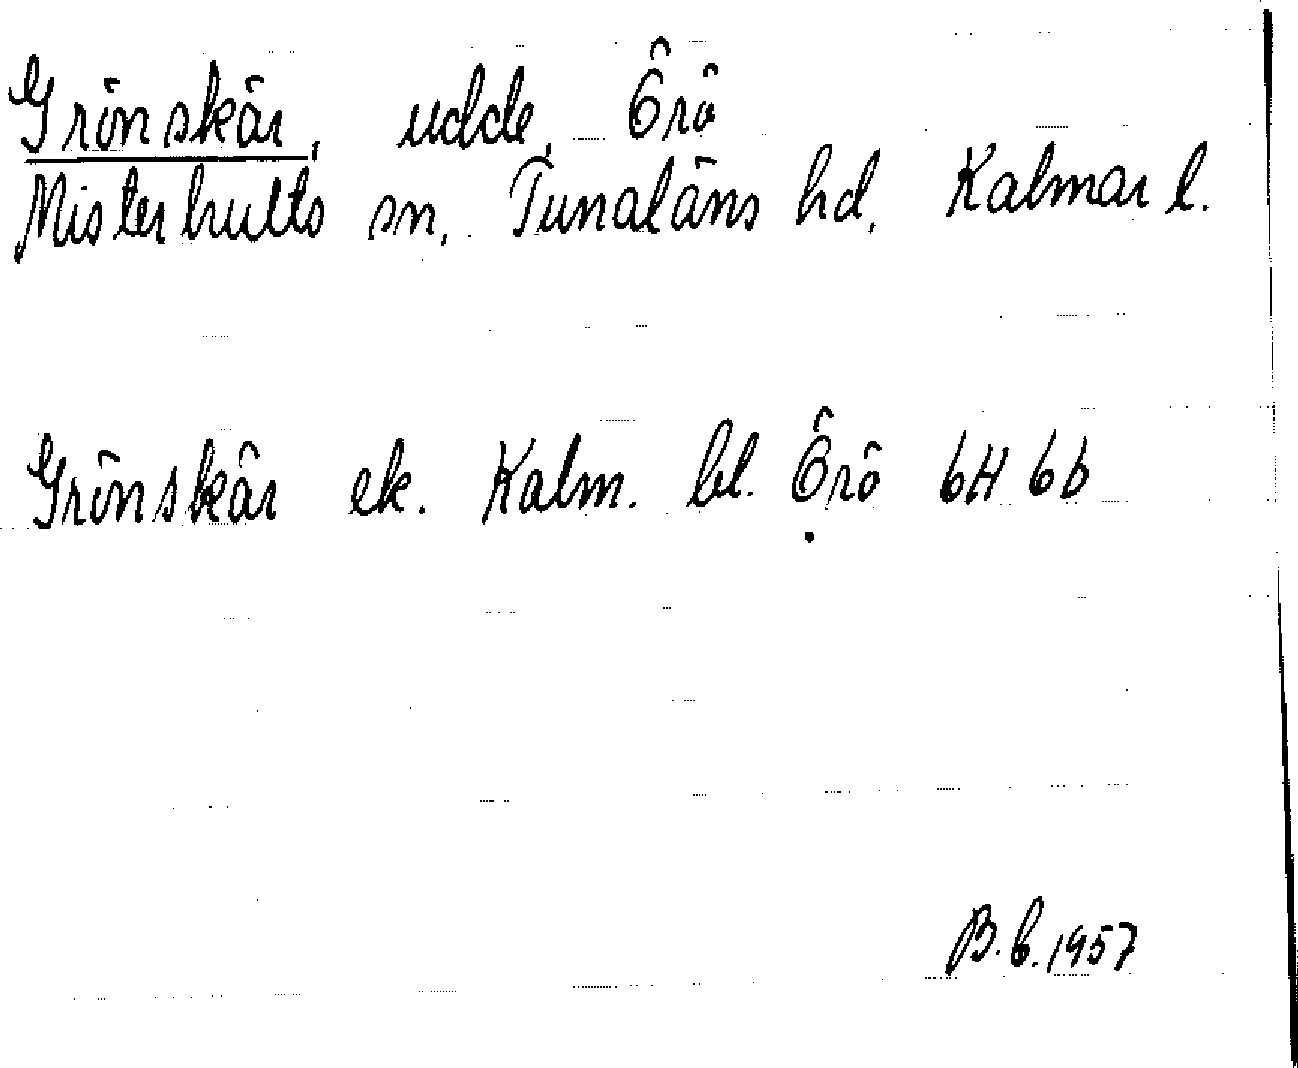 Grönskär, udde, Örö
Misterhults sn, Tunaläns hd, Kalmar l.
Grönskär ek. Kalm. bl. Örö 6H 6b
B.b. 1957